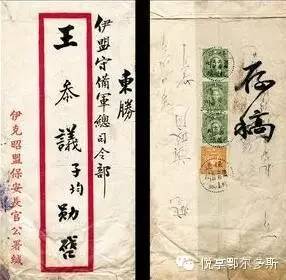 東勝
伊盟守備軍總司令部
王參議子均勛啓
伊克昭盟保安長官公署緘
存稿
悦享鄂尔多斯